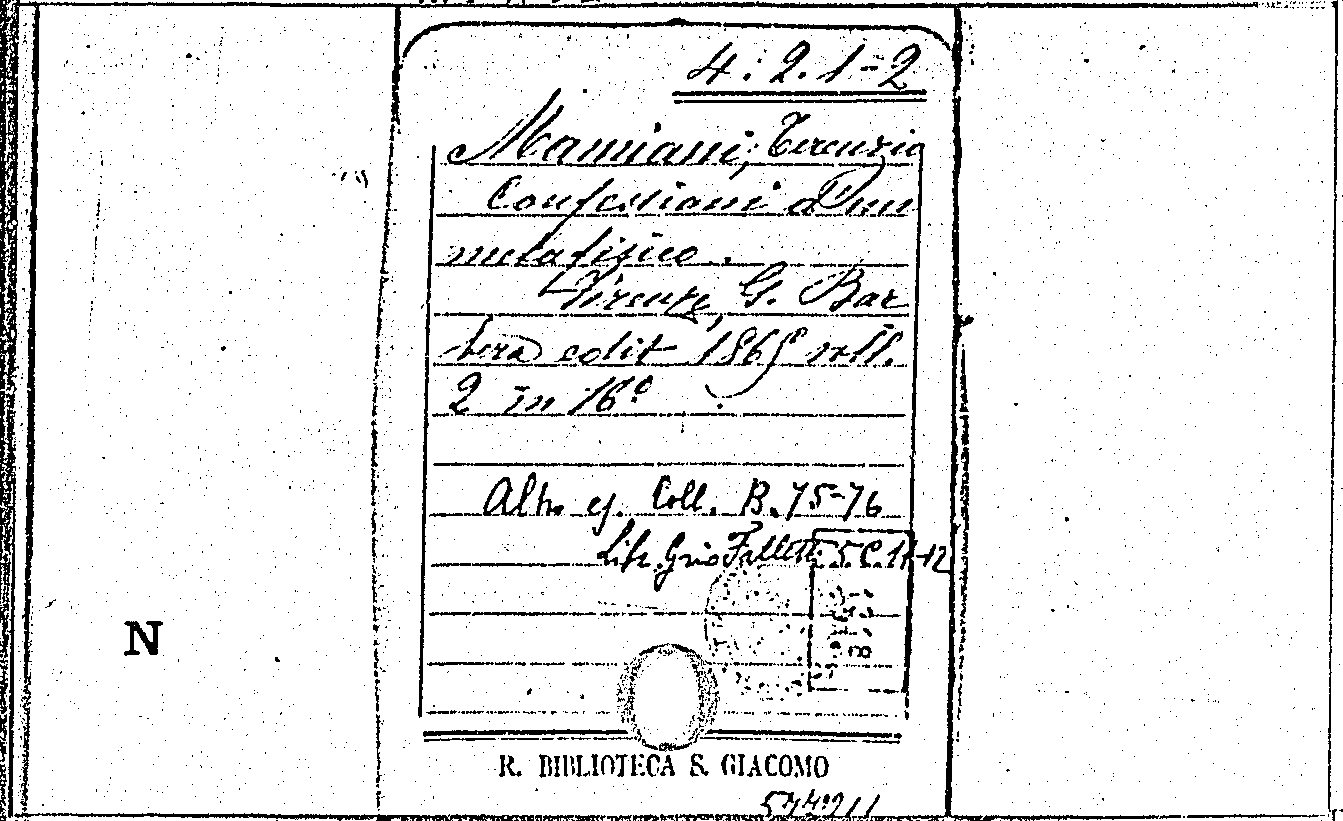 4.2.1-2
Mamiani, Terenzio
Confessioni d'un
metafisico.
Firenze, G. Bar
bera edit 1865 voll.
2 in 16°
Altr. es. Coll. B. 75-76
Lib. Falletti 5.C.11-12
N
R. BIBLIOTECA S. GIACOMO